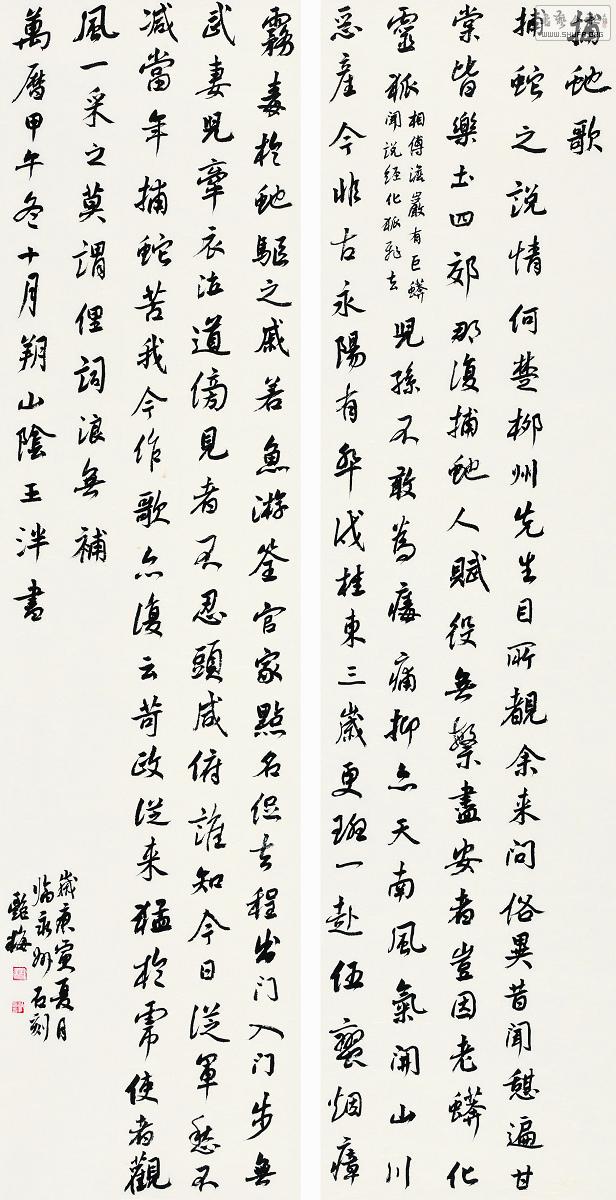 捕虵歌
捕蛇之說情何楚柳州先生目所覩余来问俗異昔聞憇遍甘
棠皆樂土四郊那復捕虵人賦役無繁盡安者豈因老蟒化
靈狐
相傳澹巖有巨蟒
聞說經化狐飛去
兒孫不敢為痿痛抑亦天南風氣開山川
惡產今非古永陽有卒戍桂東三歲更班一赴伍蠻烟瘴
霧毒於虵驅之戚若魚游筌官家點名促去程出门入门步無
武妻兒牽衣泣道傍見者不忍頭咸俯誰知今日從軍愁不
减當年捕蛇苦我今作歌亦復云苛政從来猛於虎使者觀
風一采之莫謂俚詞浪無補
萬曆甲午冬十月朔山陰王泮書
歲庚寅夏月
臨永州石刻
梅
WWW.SHUFA.ORG